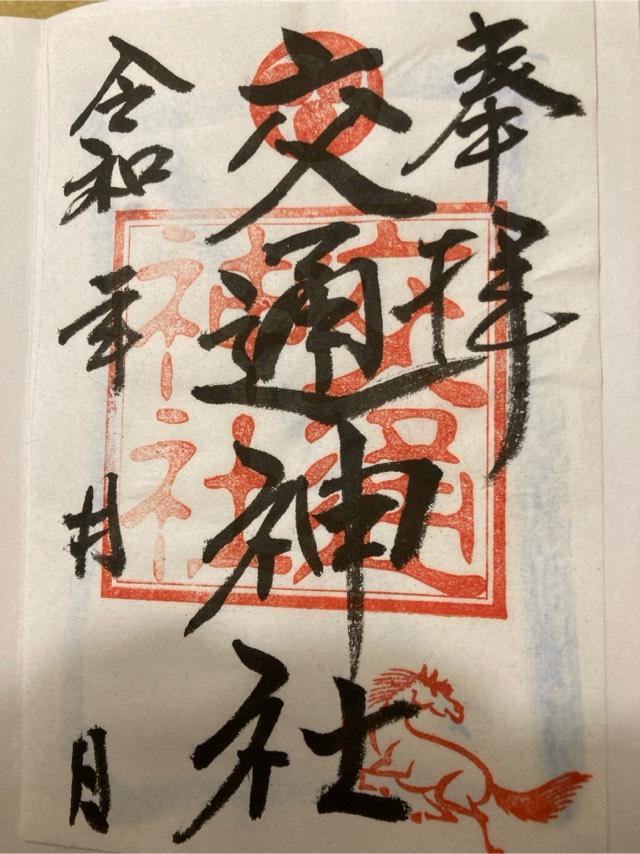 奉拝
交通神社
令和 年 月 日
交通
神社